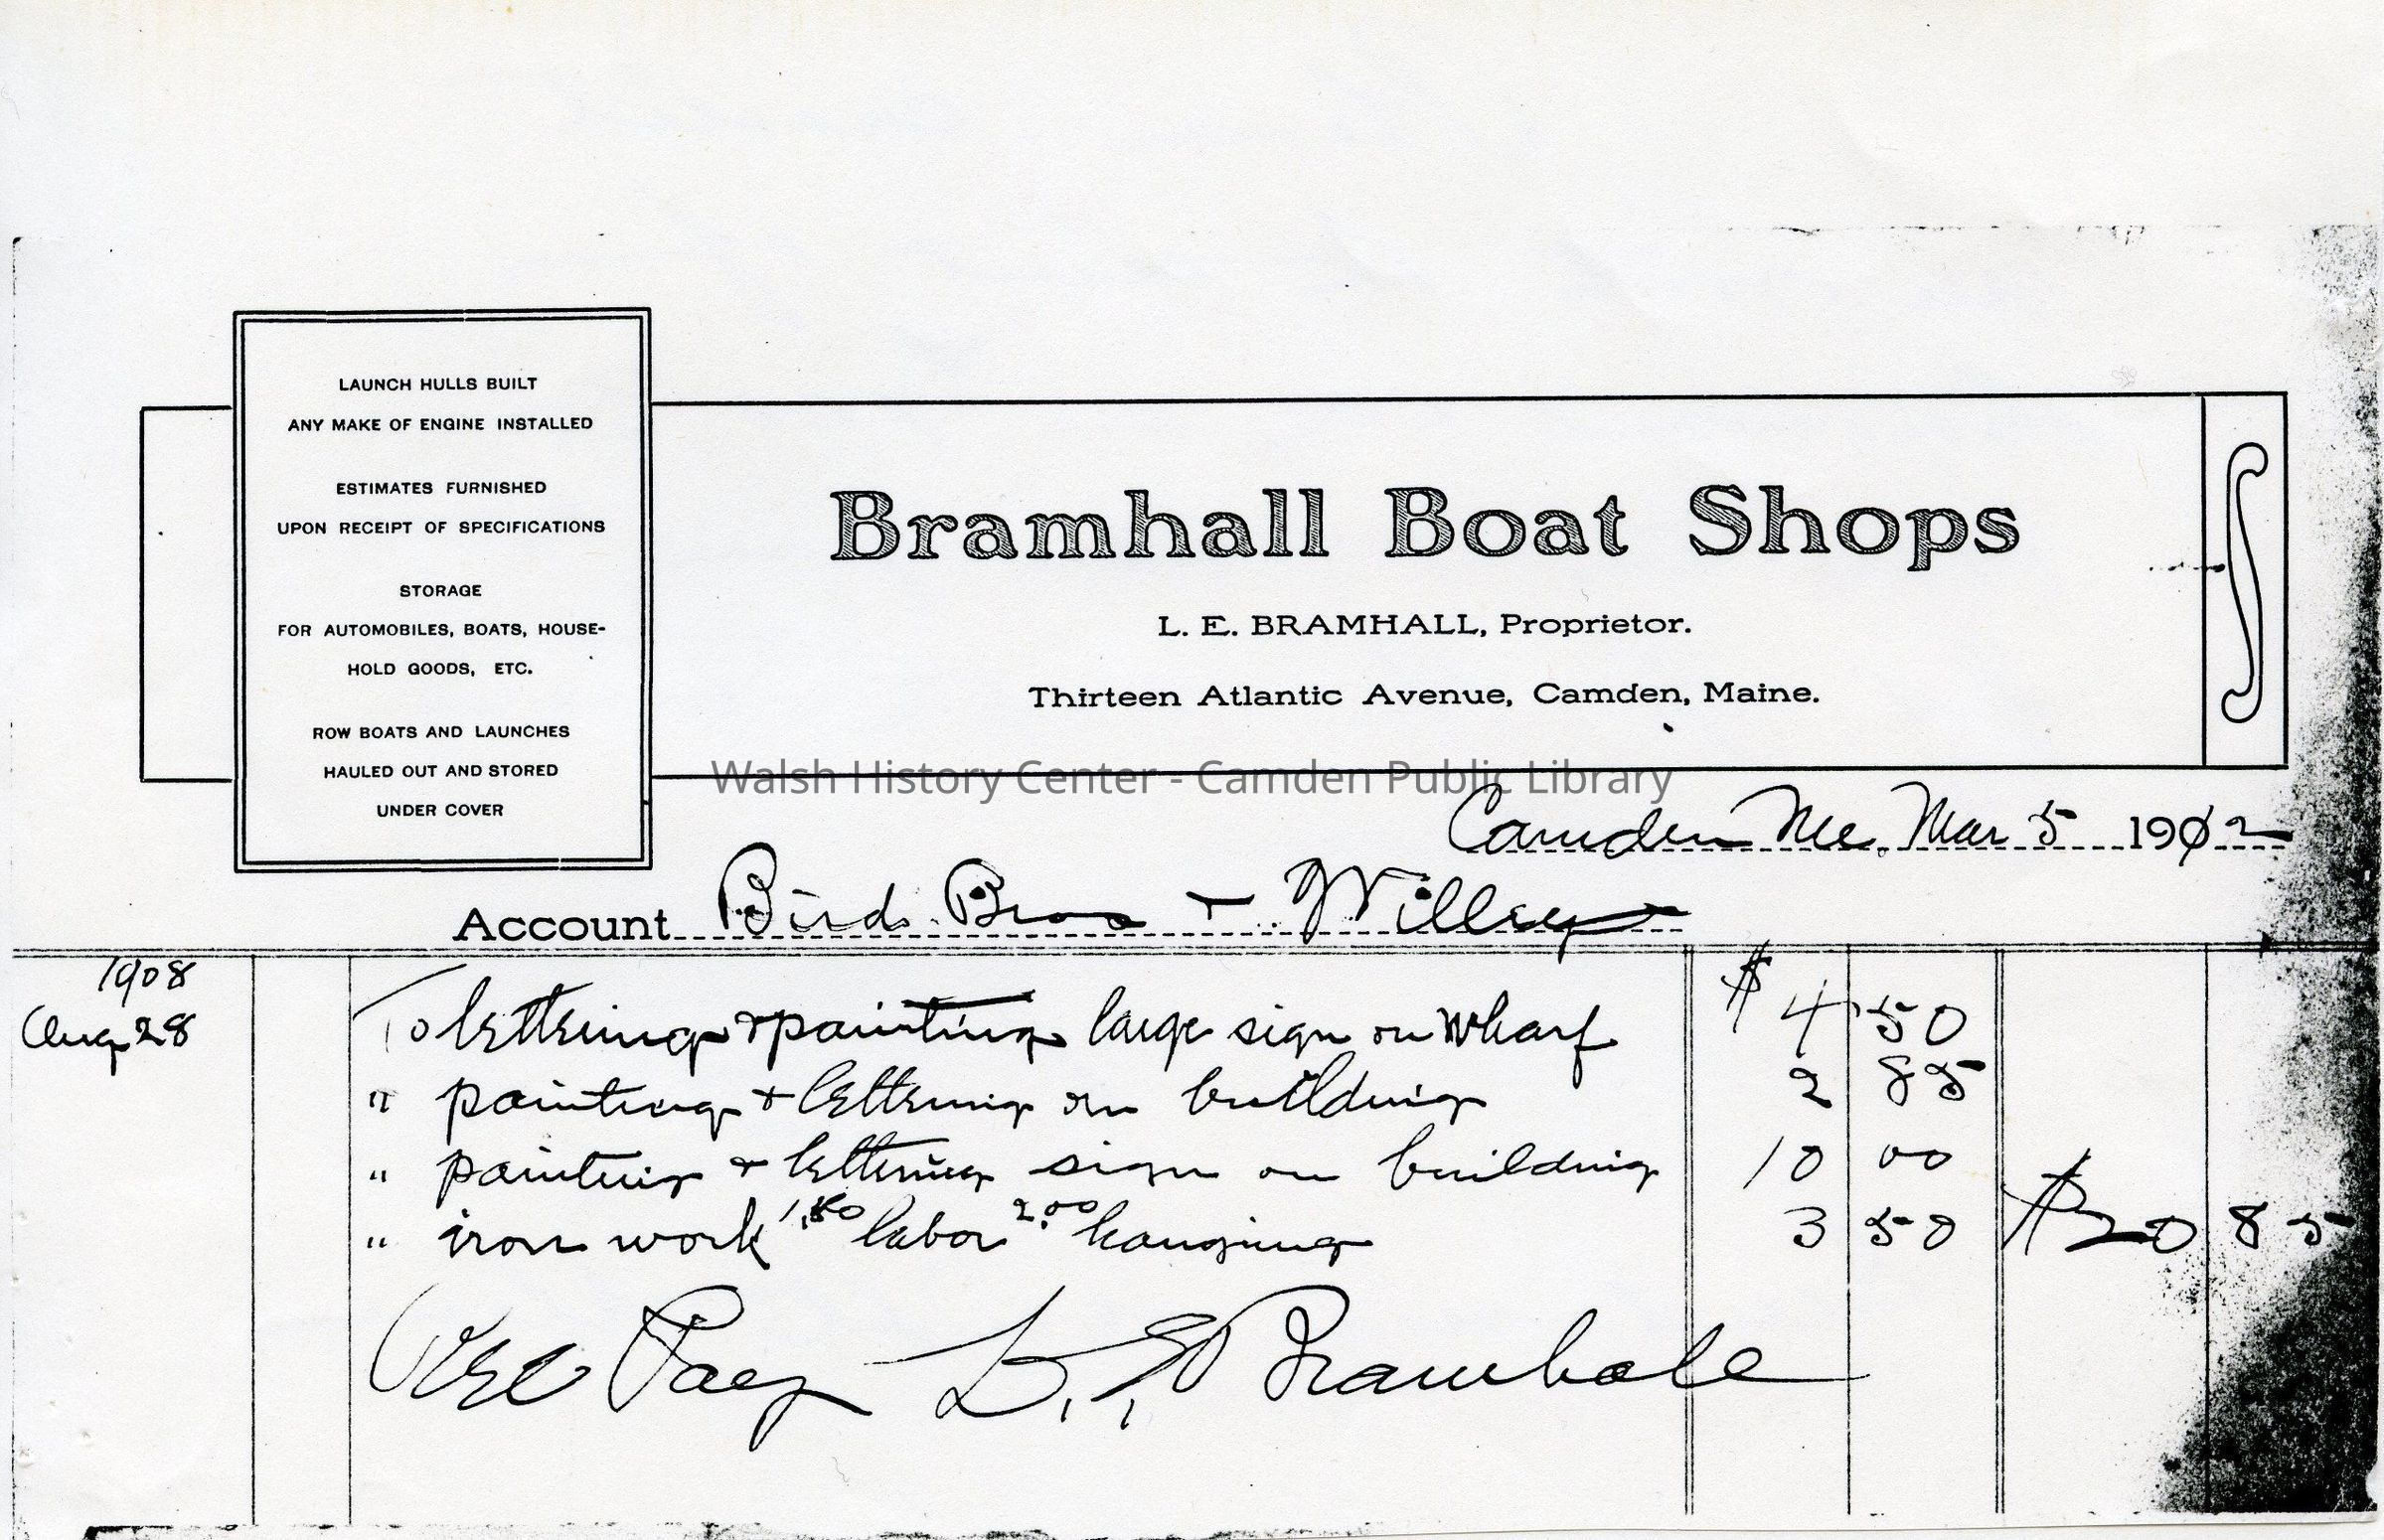 LAUNCH HULLS BUILT
ANY MAKE OF ENGINE INSTALLED
ESTIMATES FURNISHED
UPON RECEIPT OF SPECIFICATIONS
STORAGE
FOR AUTOMOBILES, BOATS, HOUSE-
HOLD GOODS, ETC.
ROW BOATS AND LAUNCHES
HAULED OUT AND STORED
UNDER COVER
Bramhall Boat Shops
L. E. BRAMHALL, Proprietor.
Thirteen Atlantic Avenue, Camden, Maine.
Walsh History Center - Camden Public Library
Camden Me. Mar 5 190
Account Bird Bros + Willey
1908
Aug 28 To lettering & painting large sign on Wharf $ 4 50
" painting + lettering on building 2 85
" painting & lettering sign on building 10 00
" iron work labor 2.00 hanging 3 50 $20 85
Pay L. E. Bramhall